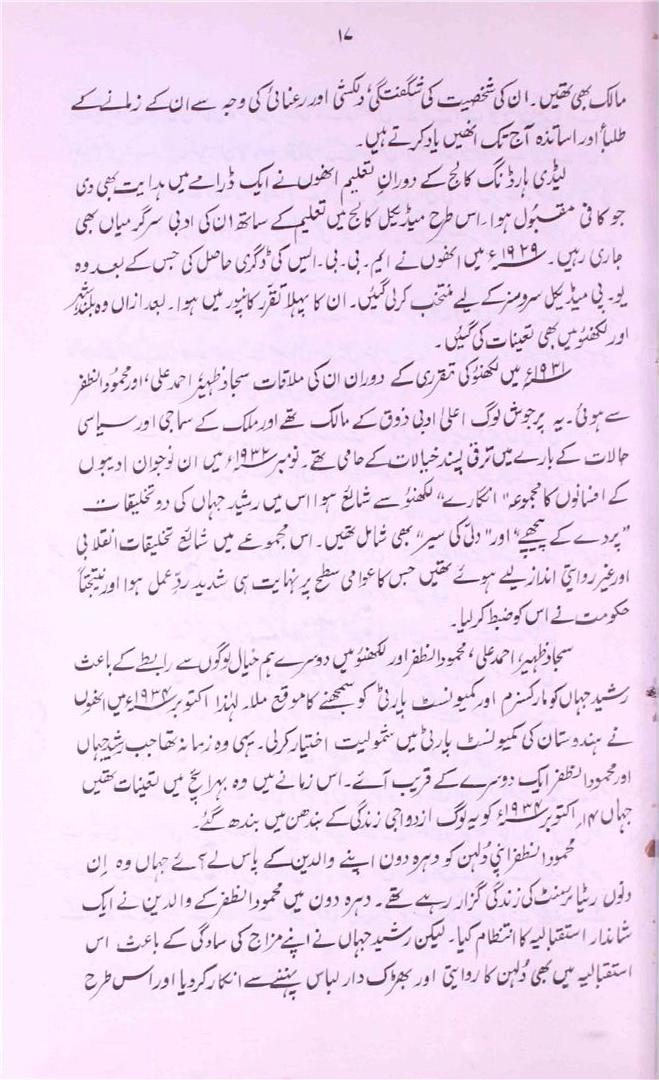 ۱۷
مالک بھی تھیں۔ ان کی شخصیت کی شگفتگی، دلکشی اور رعنائی کی وجہ سے ان کے زمانے کے
طلباء اور اساتذہ آج تک انھیں یاد کرتے ہیں۔
لیڈی ہارڈنگ کالج کے دورانِ تعلیم انھوں نے ایک ڈرامے میں ہدایت بھی دی
جو کافی مقبول ہوا۔ اس طرح میڈیکل کالج میں تعلیم کے ساتھ ان کی ادبی سرگرمیاں بھی
جاری رہیں۔ ۱۹۲۹ء میں انھوں نے ایم۔ بی۔ بی۔ ایس کی ڈگری حاصل کی جس کے بعد وہ
یو۔ پی میڈیکل سروسز کے لیے منتخب کرلی گئیں۔ ان کا پہلا تقرر کانپور میں ہوا۔ بعد ازاں وہ بلندشہر
اور لکھنؤ میں بھی تعینات کی گئیں۔
۱۹۳۱ء میں لکھنؤ کی تقرری کے دوران ان کی ملاقات سجاد ظہیر، احمد علی، اور محمود الظفر
سے ہوئی۔ یہ پرجوش لوگ اعلیٰ ادبی ذوق کے مالک تھے اور ملک کے سماجی اور سیاسی
حالات کے بارے میں ترقی پسند خیالات کے حامی تھے۔ نومبر ۱۹۳۲ء میں ان نوجوان ادیبوں
کے افسانوں کا مجموعہ "انگارے" لکھنؤ سے شائع ہوا اس میں رشید جہاں کی دو تخلیقات
"پردے کے پیچھے" اور "دلّی کی سیر" بھی شامل تھیں۔ اس مجموعے میں شائع تخلیقات انقلابی
اور غیر روایتی انداز لیے ہوئے تھیں جس کا عوامی سطح پر نہایت ہی شدید ردِّ عمل ہوا اور نتیجتاً
حکومت نے اس کو ضبط کرلیا۔
سجاد ظہیر، احمد علی، محمود الظفر اور لکھنؤ میں دوسرے ہم خیال لوگوں سے رابطے کے باعث
رشید جہاں کو مارکسزم اور کمیونسٹ پارٹی کو سمجھنے کا موقع ملا۔ لہٰذا اکتوبر ۱۹۳۴ء میں انھوں
نے ہندوستان کی کمیونسٹ پارٹی میں شمولیت اختیار کرلی۔ یہی وہ زمانہ تھا جب رشید جہاں
اور محمود الظفر ایک دوسرے کے قریب آئے۔ اس زمانے میں وہ بہرائچ میں تعینات تھیں
جہاں ۱۴؍ اکتوبر ۱۹۳۴ء کو یہ لوگ ازدواجی زندگی کے بندھن میں بندھ گئے۔
محمود الظفر اپنی دُلہن کو دہرہ دون اپنے والدین کے پاس لے آئے جہاں وہ اِن
دنوں ریٹائرمنٹ کی زندگی گزار رہے تھے۔ دہرہ دون میں محمود الظفر کے والدین نے ایک
شاندار استقبالیہ کا انتظام کیا۔ لیکن رشید جہاں نے اپنے مزاج کی سادگی کے باعث اس
استقبالیہ میں بھی دُلہن کا روایتی اور بھڑک دار لباس پہننے سے انکار کردیا اور اس طرح